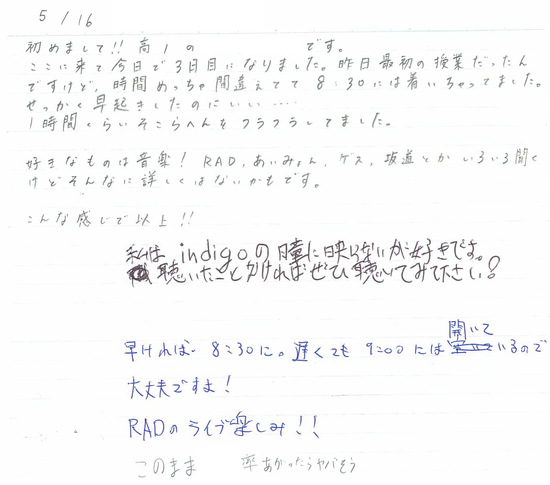 5/16
初めまして!! 高1の です。
ここに来て今日で3日目になりました。昨日最初の授業だったん
ですけど、時間めっちゃ間違えてて8:30には着いちゃってました。
せっかく早起きしたのにぃぃ....
1時間くらいそこらへんをフラフラしてました。
好きなものは音楽! RAD, あいみょん, ゲス, 坂道とかいろいろ聞く
けどそんなに詳しくはないかもです。
こんな感じで以上!!
私は indigoの瞳に映らないが好きです。
聴いたことなければぜひ聴いてみて下さい?
早ければ 8:30に。遅くても 9:00には開いているので
大丈夫ですよ!
RADのライブ楽しみ!!
このまま 率あがったらヤバそう